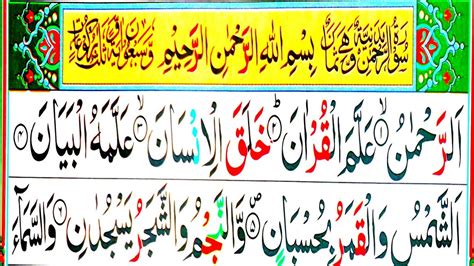 سُوْرَةُ الرَّحْمٰنِ مَدَنِيَّةٌ وَّهِيَ ثَمَانٌ بِسْمِ اللّٰهِ الرَّحْمٰنِ الرَّحِيْمِ وَّسَبْعُوْنَ اٰيَةً وَّثَلٰثُ رُكُوْعَاتٍ
اَلرَّحْمٰنُ ۙ﴿۱﴾ عَلَّمَ الْقُرْاٰنَ ؕ﴿۲﴾ خَلَقَ الْاِنْسَانَ ۙ﴿۳﴾ عَلَّمَهُ الْبَيَانَ ﴿۴﴾
اَلشَّمْسُ وَالْقَمَرُ بِحُسْبَانٍ ۪﴿۵﴾ وَّالنَّجْمُ وَالشَّجَرُ يَسْجُدٰنِ ﴿۶﴾ وَالسَّمَآءَ